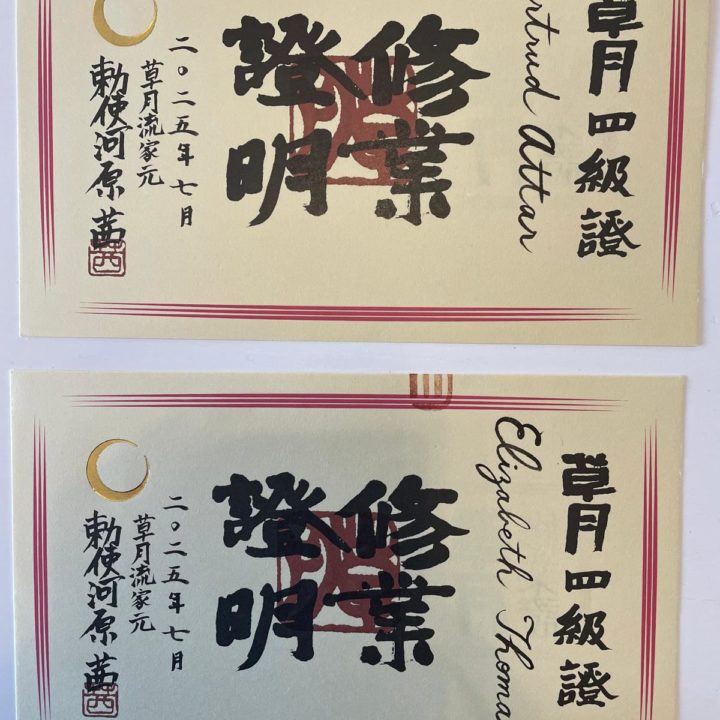 草月四級證
rtrud Attar
修業
證明
二〇二五年七月
草月流家元
勅使河原茜
茜
草月四級證
Elizabeth Thoma
修業
證明
二〇二五年七月
草月流家元
勅使河原茜
茜